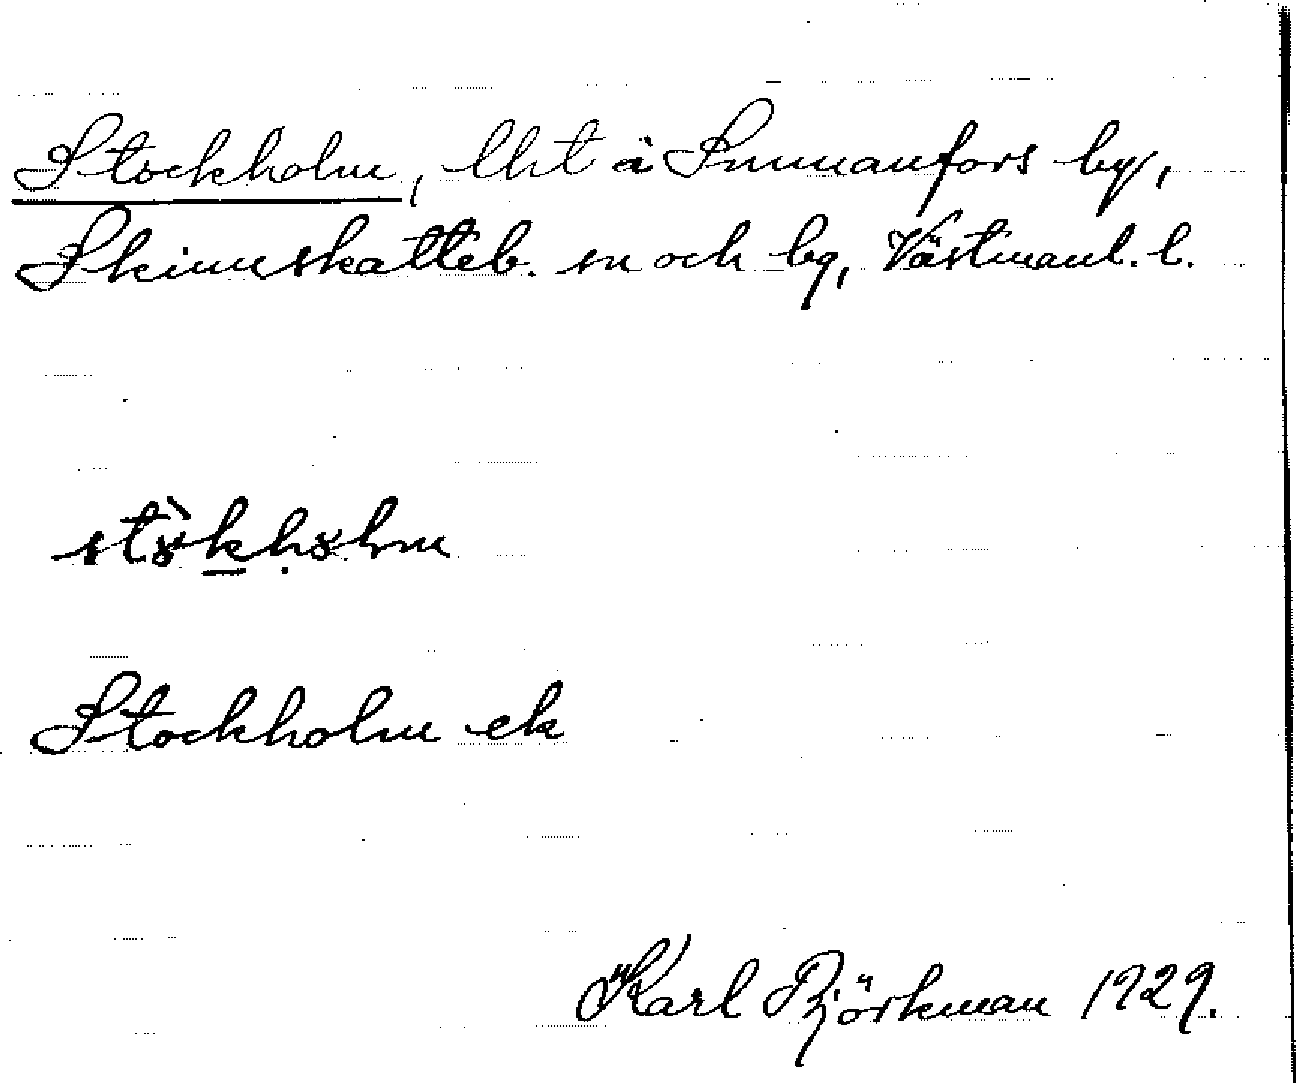 Stockholm, lht å Sunnanfors by,
Skinnskatteb. sn och bg, Västmanl. l.
Stockholm ek
Karl Björkman 1929.